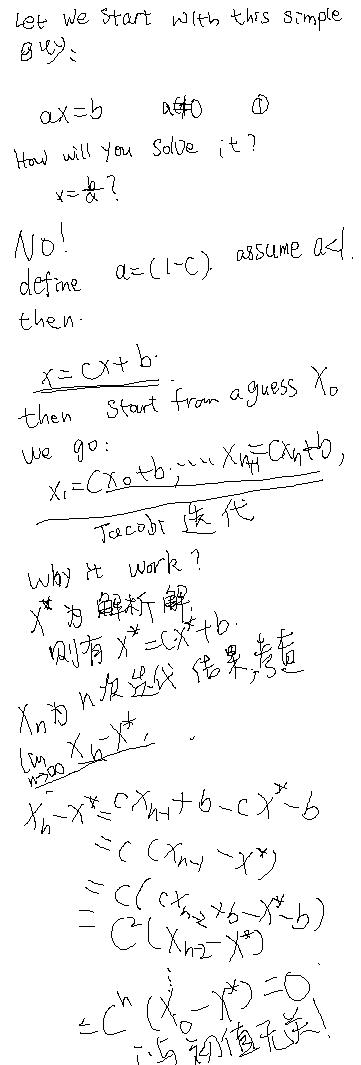 Let We Start With this simple
guy:
ax=b a≠0 ①
How will you solve it?
x=b/a?
NO!
define a=(1-C). assume a<1.
then.
x=cx+b.
then Start from a guess X₀
we go:
x₁=Cx₀+b,⋯⋯ Xₙ₊₁=Cxₙ+b,
Jacobi 迭代
why it work?
X*为解析解
则有 X*=CX*+b.
Xₙ为n次迭代结果,考查
lim n→∞ Xₙ-X*,
Xₙ-X*=CXₙ₋₁+b-CX*-b
=C(Xₙ₋₁-X*)
=C(CXₙ₋₂+b-X*-b)
=C²(Xₙ₋₂-X*)
⋮
=Cⁿ(X₀-X*)=0
∴与初值无关!